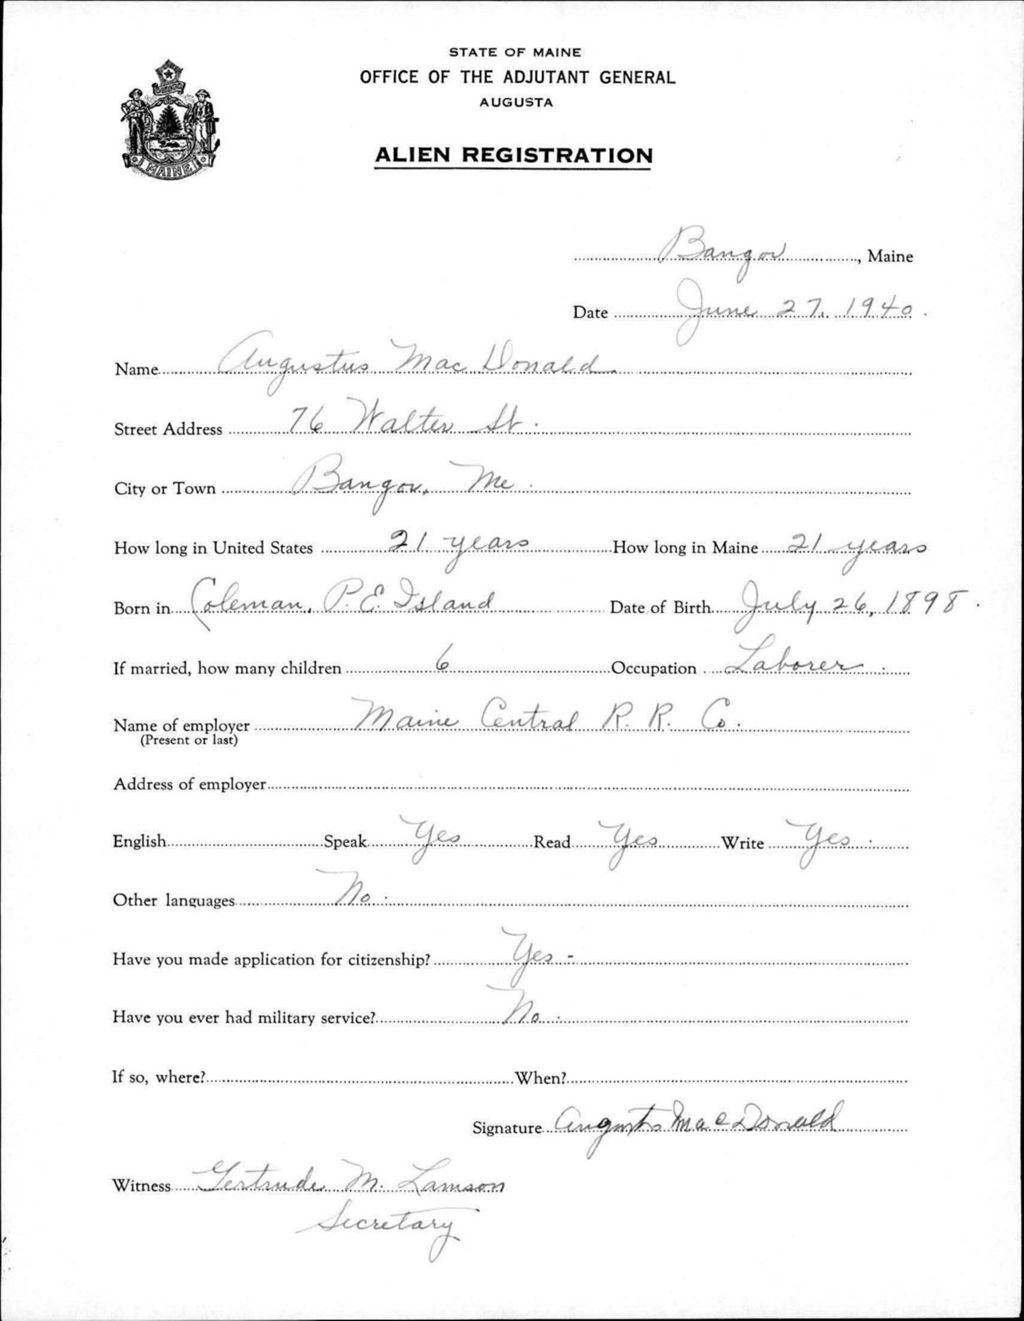 STATE OF MAINE
OFFICE OF THE ADJUTANT GENERAL
AUGUSTA
ALIEN REGISTRATION
MAINE
Bangor, Maine
Date June 27, 1940.
Name Augustus MacDonald.
Street Address 76 Walter St.
City or Town Bangor, Me.
How long in United States 21 years How long in Maine 21 years
Born in Coleman, P.E. Island Date of Birth July 26, 1898.
If married, how many children 6 Occupation Laborer.
Name of employer Maine Central R. R. Co.
(Present or last)
Address of employer
English Speak Yes Read Yes Write Yes.
Other languages No.
Have you made application for citizenship? Yes -
Have you ever had military service? No.
If so, where? When?
Signature Augustus MacDonald
Witness Gertrude M. Lamson
Secretary